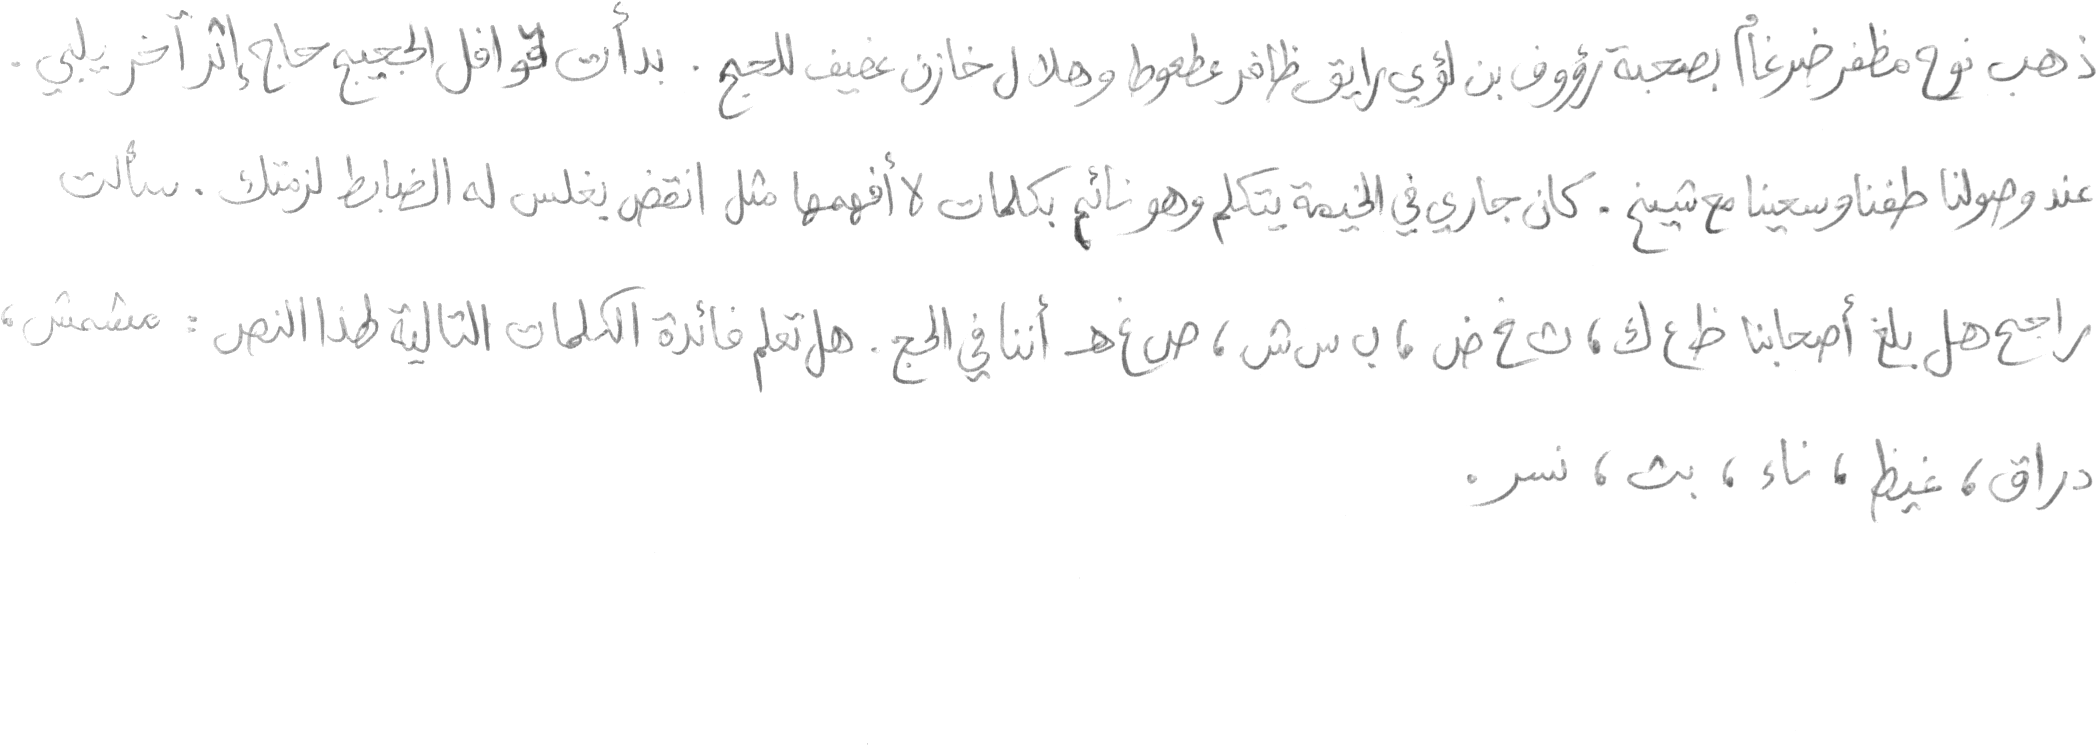 ذهب نوح مظفر ضرغام بصحبة رؤوف بن لؤي رايق ظافر عطعوط وهلال خازن غضيف للحج . بدأت قوافل الحجيج حاج إثر آخر يلبي .
عند وصولنا طفنا وسعينا مع شيخ . كان جاري في الخيمة يتكلم وهو نائم بكلمات لا أفهمها مثل انقض يغلس له الضابط لزمتك . سألت
راجح هل بلغ أصحابنا ظ ع ك ، ث خ ض ، ب س ش ، ص غ هـ أننا في الحج . هل تعلم فائدة الكلمات التالية لهذا النص : مشمش ،
دراق ، غيظ ، ناء ، بث ، نسر .